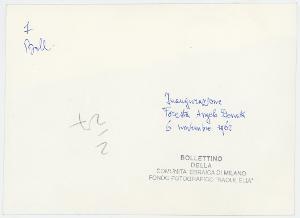 7
Boll.
Inaugurazione
Foresta Angelo Donati
6 novembre 1962
BOLLETTINO
DELLA
COMUNITÀ EBRAICA DI MILANO
FONDO FOTOGRAFICO "RAOUL ELIA"